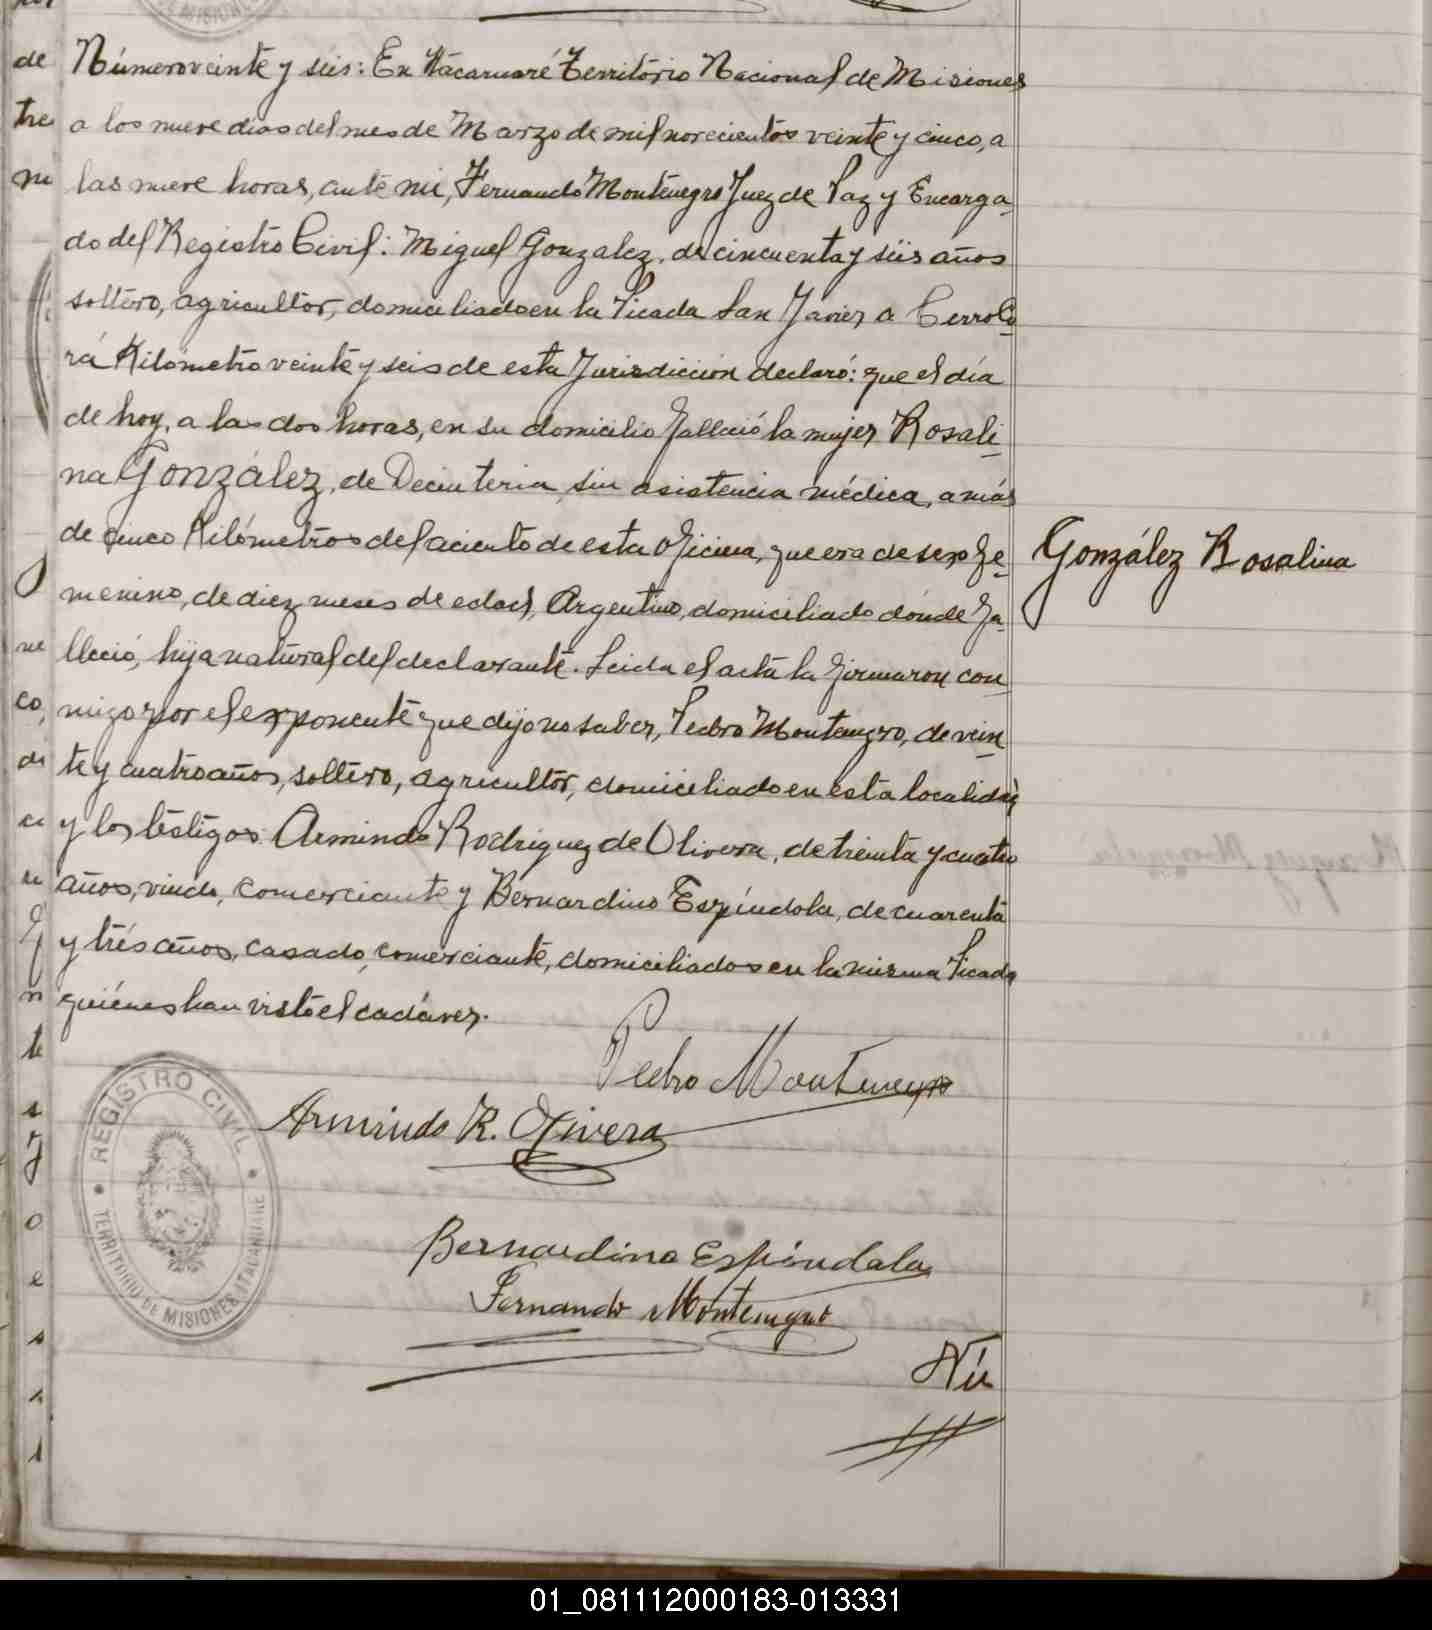 Número veinte y seis: En Itacaruaré Território Nacional de Misiones
a los nueve dias del mes de Marzo de mil novecientos veinte y cinco, a
las nueve horas, ante mi, Fernando Montenegro Juez de Paz y Encarga-
do del Registro Civil: Miguel Gonzalez, de cincuenta y séis años
soltero, agricultor, domiciliado en la Picada San Javier a Cerro Co-
rá Kilómetro veinte y seis de esta Jurisdicción declaró: que el día
de hoy, a las dos horas, en su domicilio falleció la mujer Rosali-
na González, de Decinteria, sin asistencia médica, a más
de cinco Kilómetros del aciento de esta oficina, que era de sexo fe-
menino, de diez meses de edad, Argentino, domiciliado dónde fa-
lleció, hija natural del declarante. Leida el acta la firmaron con-
migo por el exponente que dijo no saber, Pedro Montenegro, de vein-
te y cuatro años, soltero, agricultor, domiciliado en esta localidad
y los testigos: Armindo Rodriguez de Olivera, de treinta y cuatro
años, viudo, comerciante y Bernardino Espíndola, de cuarenta
y trés años, casado, comerciante, domiciliados en la misma Picada
quiénes han visto el cadáver.
González Rosalina
Pedro Montenegro
Armindo R. Olivera
Bernardino Espíndola
Fernando Montenegro
Nú
REGISTRO CIVIL
TERRITORIO DE MISIONES ITACARUARE
01_081112000183-013331